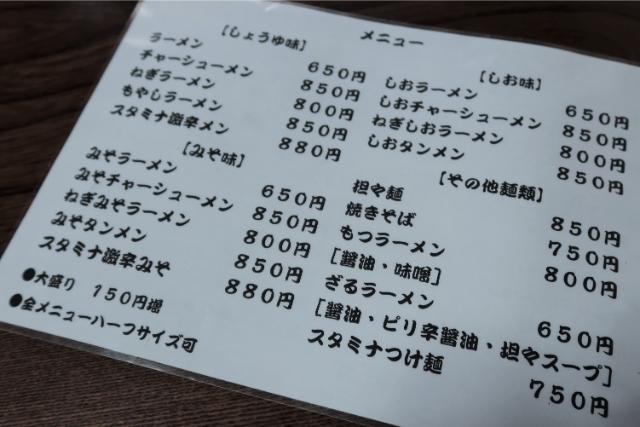 メニュー
[しょうゆ味]
ラーメン 650円
チャーシューメン 850円
ねぎラーメン 800円
もやしラーメン 850円
スタミナ激辛メン 880円
[みそ味]
みそラーメン 650円
みそチャーシューメン 850円
ねぎみそラーメン 800円
みそタンメン 850円
スタミナ激辛みそ 880円
●大盛り 150円増
●全メニューハーフサイズ可
[しお味]
しおラーメン 650円
しおチャーシューメン 850円
ねぎしおラーメン 800円
しおタンメン 850円
[その他麺類]
担々麺 850円
焼きそば 750円
もつラーメン 800円
[醤油・味噌]
ざるラーメン 650円
[醤油・ピリ辛醤油・担々スープ]
スタミナつけ麺 750円